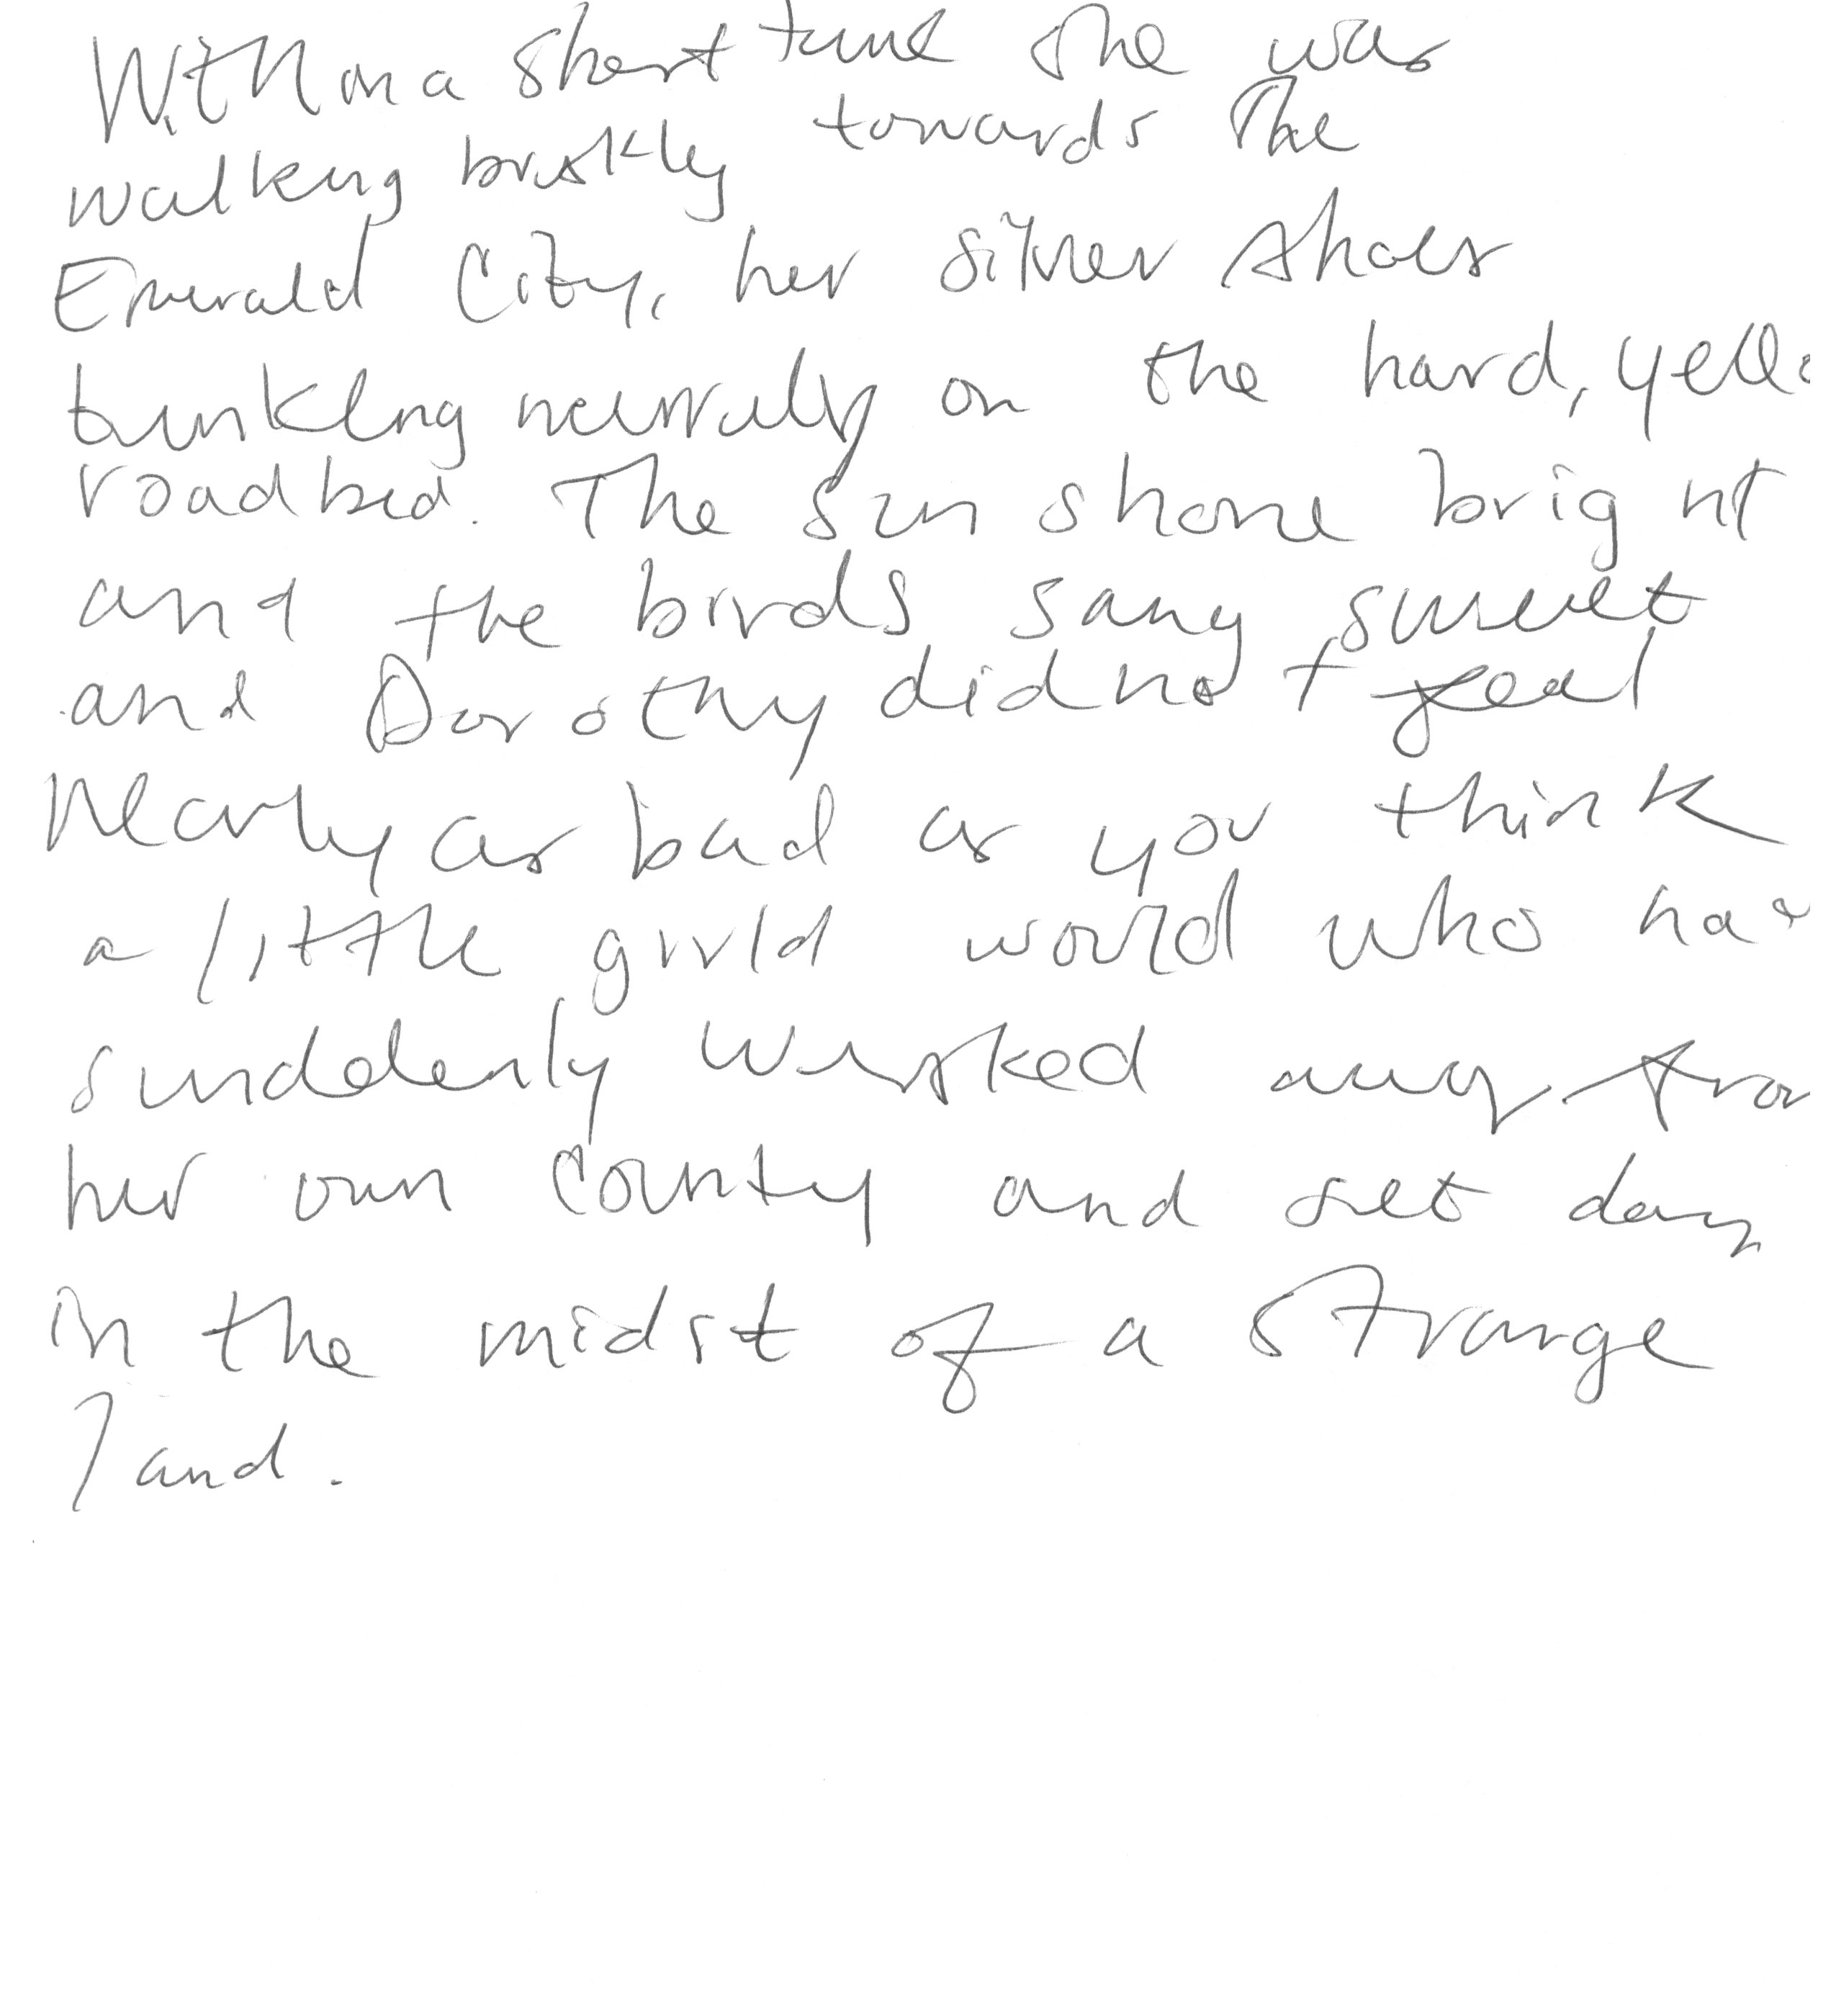 Within a short time she was
walking briskly towards the
Emerald City, her silver shoes
tinkling merrily on the hard, yello
roadbed. The sun shone bright
and the birds sang sweet
and Dorothy didnot feel
nearly as bad as you think
a little girld would who had
sunddenly wisked away from
her own county and set down
in the midst of a strange
land.